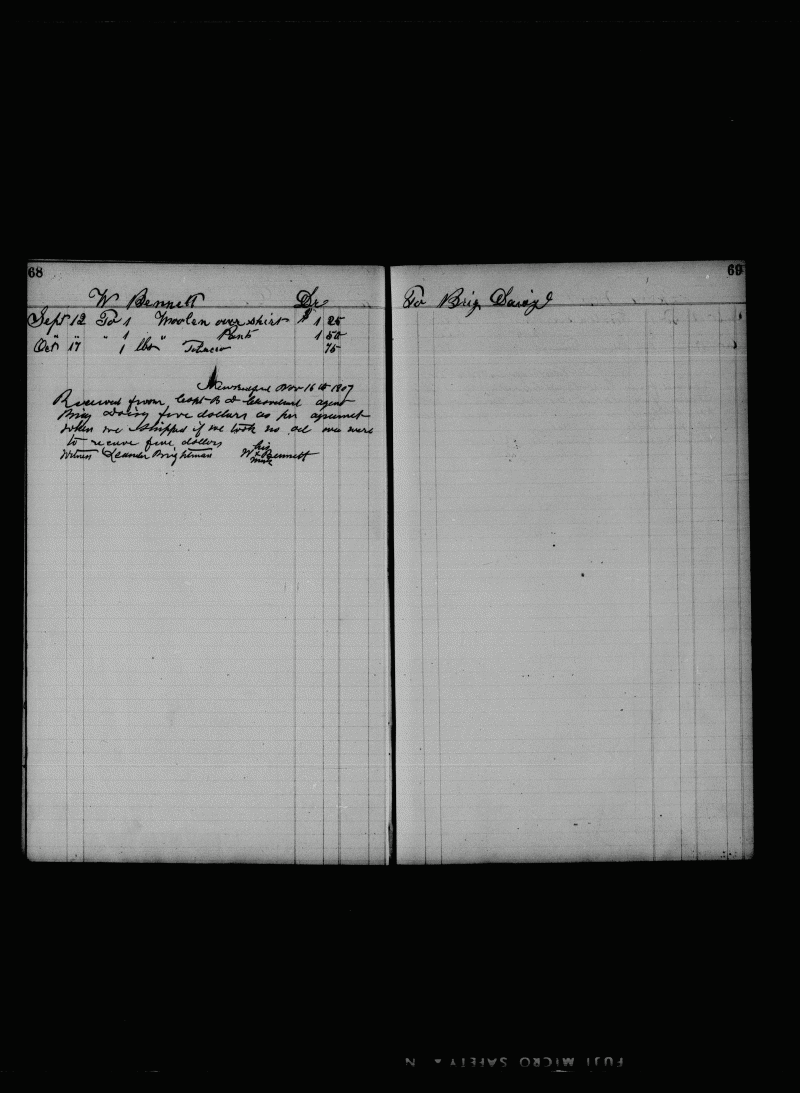 68
W Bennett Dr
Sept 12 To 1 Woolen over shirt $ 1 25
" " " 1 " Pants 1 50
Oct 17 1 lbs Tobacco 75
New Bedford Nov 16th 1907
Received from Capt B D Cleveland agent
Brig Daisy five dollars as per agreement
when we shipped if we took no oil we were
to receive five dollars
Witness Leander Brightman W his x mark Bennett
69
To Brig Daisy
FUJI MICRO SAFETY N